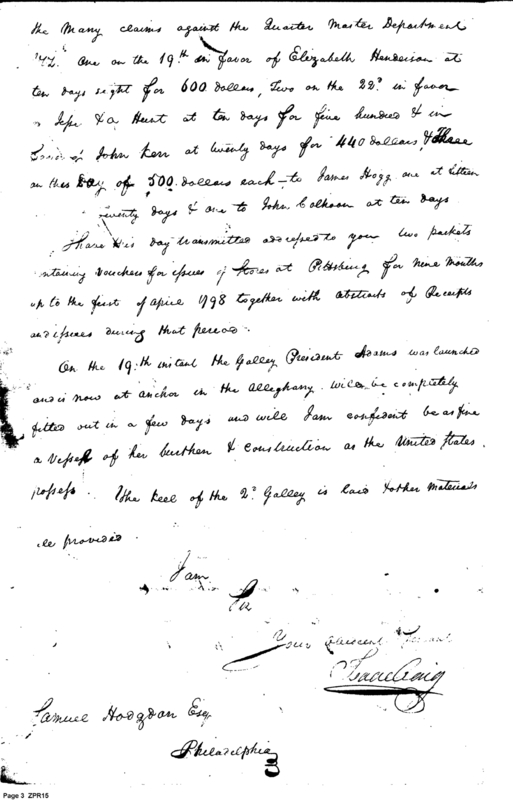 the Many claims against the Quarter Master Department
Viz. One on the 19.th in favor of Elizabeth Henderson at
ten days sight for 600 dollars, Two on the 22.d in favor
& a Hunt at ten days for five hundred & in
favor of John Kerr at twenty days for 440 dollars, & Three
on this Day of 500 dollars each to James Hogg one at fifteen
twenty days & one to John Calhoon at ten days
I have this day transmitted addressed to you two packets
ntaining Vouchers for issues of Stores at Pittsburg for nine Months
up to the first of April 1798 together with abstracts of Receipts
and issues during that period.
On the 19.th instant the Galley President Adams was launched
and is now at anchor in the Alleghany. will be completely
fitted out in a few days and will I am confident be as fine
a Vessel of her burthen & construction as the United States
possess. The keel of the 2.d Galley is laid & other Materials
are provided
I am
Sir
Your Obedient Servant
Isaac Craig
Samuel Hodgdon Esq.
Philadelphia
Page 3 ZPR15